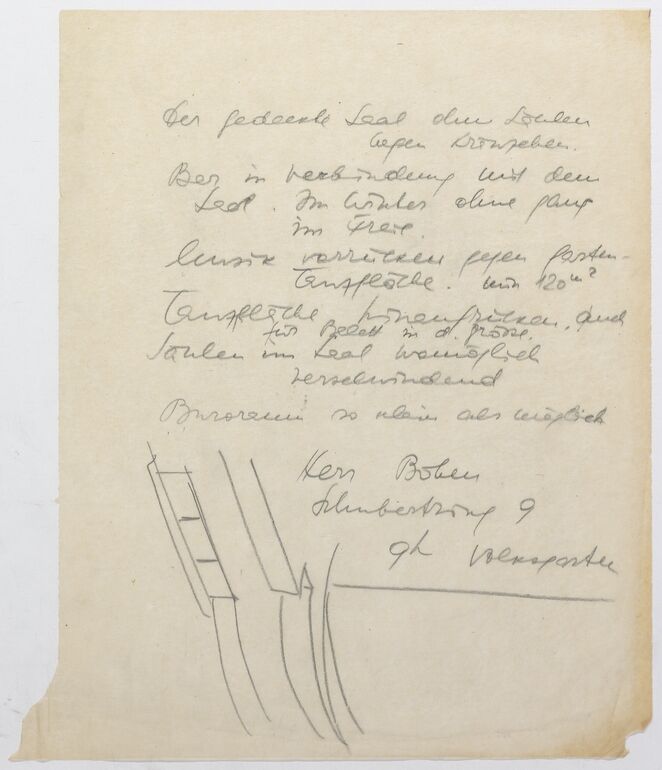 Der gedeckte Saal ohne Säulen
wegen
Bar in Verbindung mit dem
Saal. Im Winter ohne gang
im Freie.
Musik vorrücken gegen garten-
Tanzfläche. min 120 m²
Tanzfläche auch
für Balett in d. größe.
Säulen im Saal womöglich
verschwindend
Büroraum so klein als möglich
Herr
Schubertring 9
9h Volksgarten